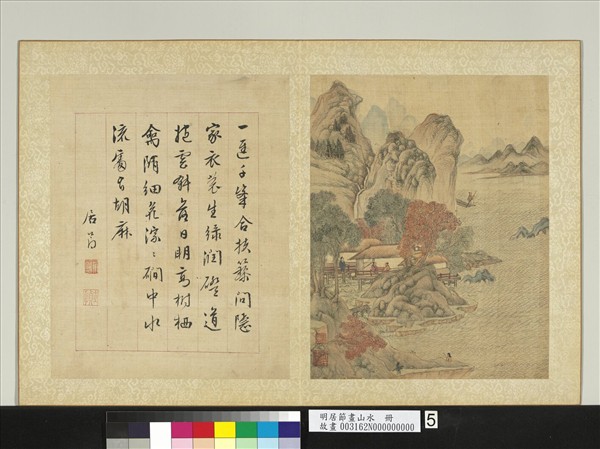 一逕千峯合扶藜問隱
家衣裳生綠潤磴道
抱雲斜落日明高樹栖
禽細花磵中水
流處有胡麻
居節
明居節畫山水 冊
故畫 003162N000000000
5